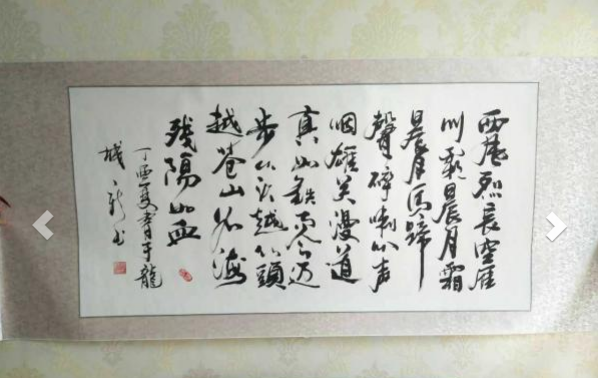 西風烈長空雁
叫霜晨月霜
晨月馬蹄
聲碎喇叭声
咽雄关漫道
真如鉄而今迈
步从头越从頭
越苍山如海
残陽如血
丁酉夏書于龍
城